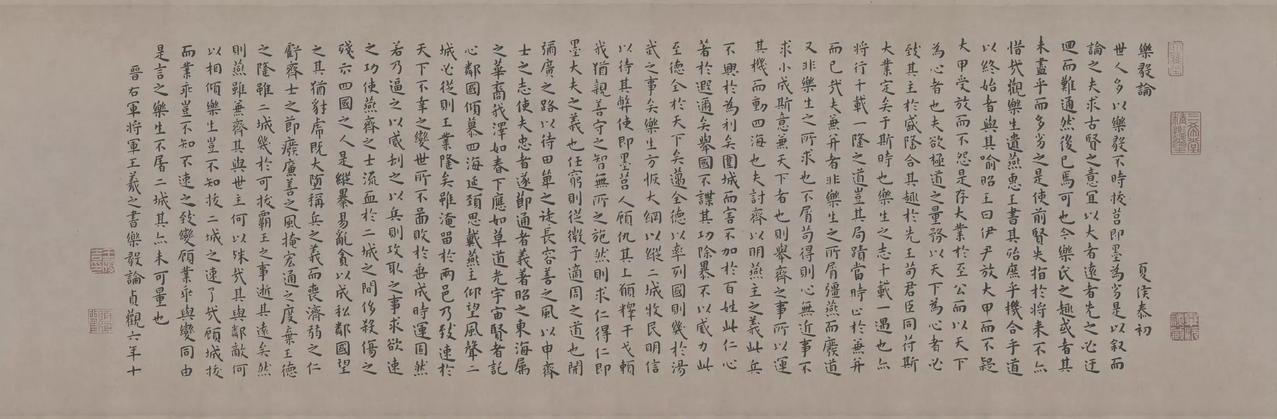 樂毅論 夏侯泰初
世人多以樂毅不時拔莒即墨為劣是以叙而
論之夫求古賢之意宜以大者遠者先之必迂
迴而難通然後已焉可也今樂氏之趣或者其
未盡乎而多劣之是使前賢失指於將来不亦
惜哉觀樂生遺燕惠王書其殆庶乎機合乎道
以終始者與其喻昭王曰伊尹放大甲而不疑
大甲受放而不怨是存大業於至公而以天下
為心者也夫欲極道之量務以天下為心者必
致其主於盛隆合其趣於先王苟君臣同符斯
大業定矣于斯時也樂生之志千載一遇也亦
將行千載一隆之道豈其局蹟當時止於兼并
而已哉夫兼并者非樂生之所屑彊燕而廢道
又非樂生之所求也不屑苟得則心無近事不
求小成斯意兼天下者也則舉齊之事所以運
其機而動四海也夫討齊以明燕主之義此兵
不興於為利矣圍城而害不加於百姓此仁心
著於遐邇矣舉國不謀其功除暴不以威力此
至德全於天下矣邁全德以率列國則幾於湯
武之事矣樂生方恢大綱以縱二城牧民明信
以待其弊使即墨莒人顧仇其上願釋干戈賴
我猶親善守之智無所之施然則求仁得仁即
墨大夫之義也任窮則從微子適周之道也開
彌廣之路以待田單之徒長容善之風以申齊
士之志使夫忠者遂節通者義著昭之東海屬
之華裔我澤如春下應如草道光宇宙賢者託
心鄰國傾慕四海延頸思戴燕主仰望風聲二
城必從則王業隆矣雖淹留於兩邑乃致速於
天下不幸之變世所不啚敗於垂成時運固然
若乃逼之以威刧之以兵則攻取之事求欲速
之功使燕齊之士流血於二城之間侈殺傷之
殘示四國之人是縱暴易亂貪以成私鄰國望
之其猶豺虎既大墮稱兵之義而喪濟弱之仁
虧齊士之節廢廉善之風掩宏通之度棄王德
之隆雖二城幾於可拔霸王之事逝其遠矣然
則燕雖兼齊其與世主何以殊哉其與鄰敵何
以相傾樂生豈不知拔二城之速了哉顧城拔
而業乖豈不知不速之致變顧業乖與變同由
是言之樂生不屠二城其亦未可量也
晉右軍將軍王羲之書樂毅論貞觀六年十